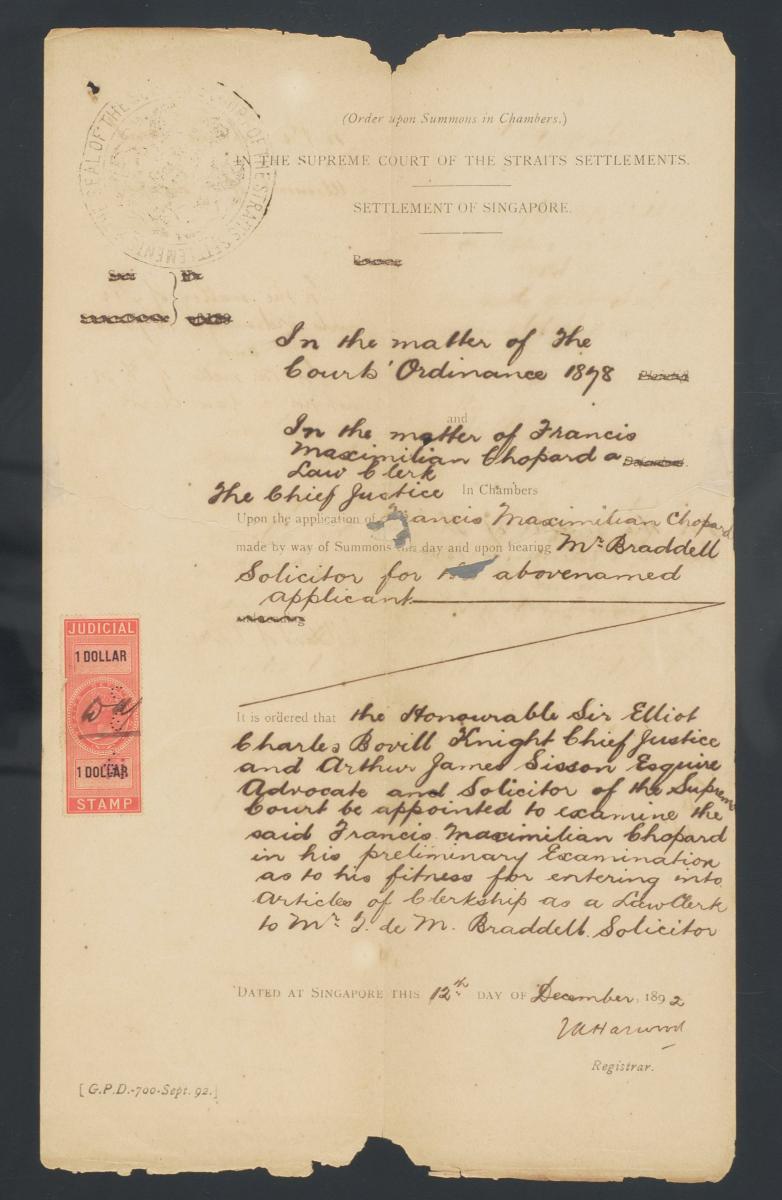 (Order upon Summons in Chambers.)
IN THE SUPREME COURT OF THE STRAITS SETTLEMENTS.
SETTLEMENT OF SINGAPORE.
SEAL OF THE SUPREME COURT OF THE STRAITS SETTLEMENTS
In the matter of The
Courts' Ordinance 1878
and
In the matter of Francis
Maximilian Chopard a
Law Clerk
The Chief Justice In Chambers
Upon the application of Francis Maximilian Chopard
made by way of Summons this day and upon hearing Mr Braddell
Solicitor for abovenamed
applicant
JUDICIAL
1 DOLLAR
1 DOLLAR
STAMP
It is ordered that the Honourable Sir Elliot
Charles Bovill Knight Chief Justice
and Arthur James Sisson Esquire
Advocate and Solicitor of the Supreme
Court be appointed to examine the
said Francis Maximilian Chopard
in his preliminary Examination
as to his fitness for entering into
Articles of Clerkship as a Law Clerk
to Mr T. de M. Braddell Solicitor
DATED AT SINGAPORE THIS 12th DAY OF December, 1892
Harwood
Registrar.
[G.P.D.-700-Sept. 92.]